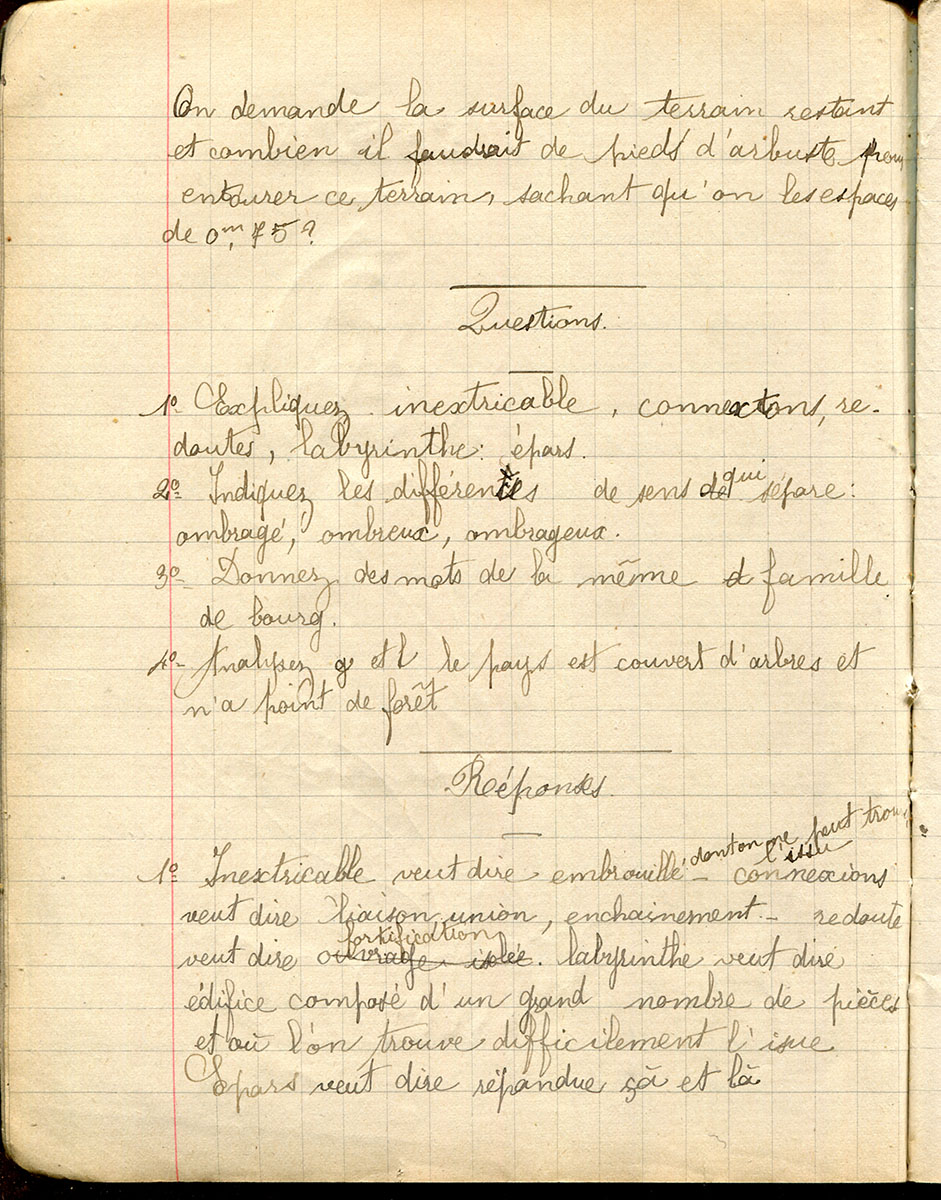 On demande la surface du terrain restant
et combien il faudrait de pieds d'arbuste pour
entourer ce terrain, sachant qu'on les espaces
de 0m,75?
Questions.
1º Expliquez inextricable, connextons, re-
doutes, labyrinthe: épars.
2º Indiquez les différentes de sens de qui sépare:
ombragé, ombreux, ombrageux.
3º Donnez des mots de la même d famille
de bourg.
4º Analysez g et l le pays est couvert d'arbres et
n'a point de forêt
Réponses.
dont on ne peut trouv
l'issu
1º Inextricable veut dire embrouillé - connexions
veut dire liaison, union, enchainement - redoute
fortification
veut dire ouvrage isolée. labyrinthe veut dire
édifice composé d'un grand nombre de pièces
et où l'on trouve difficilement l'isue
Epars veut dire répandue çà et là